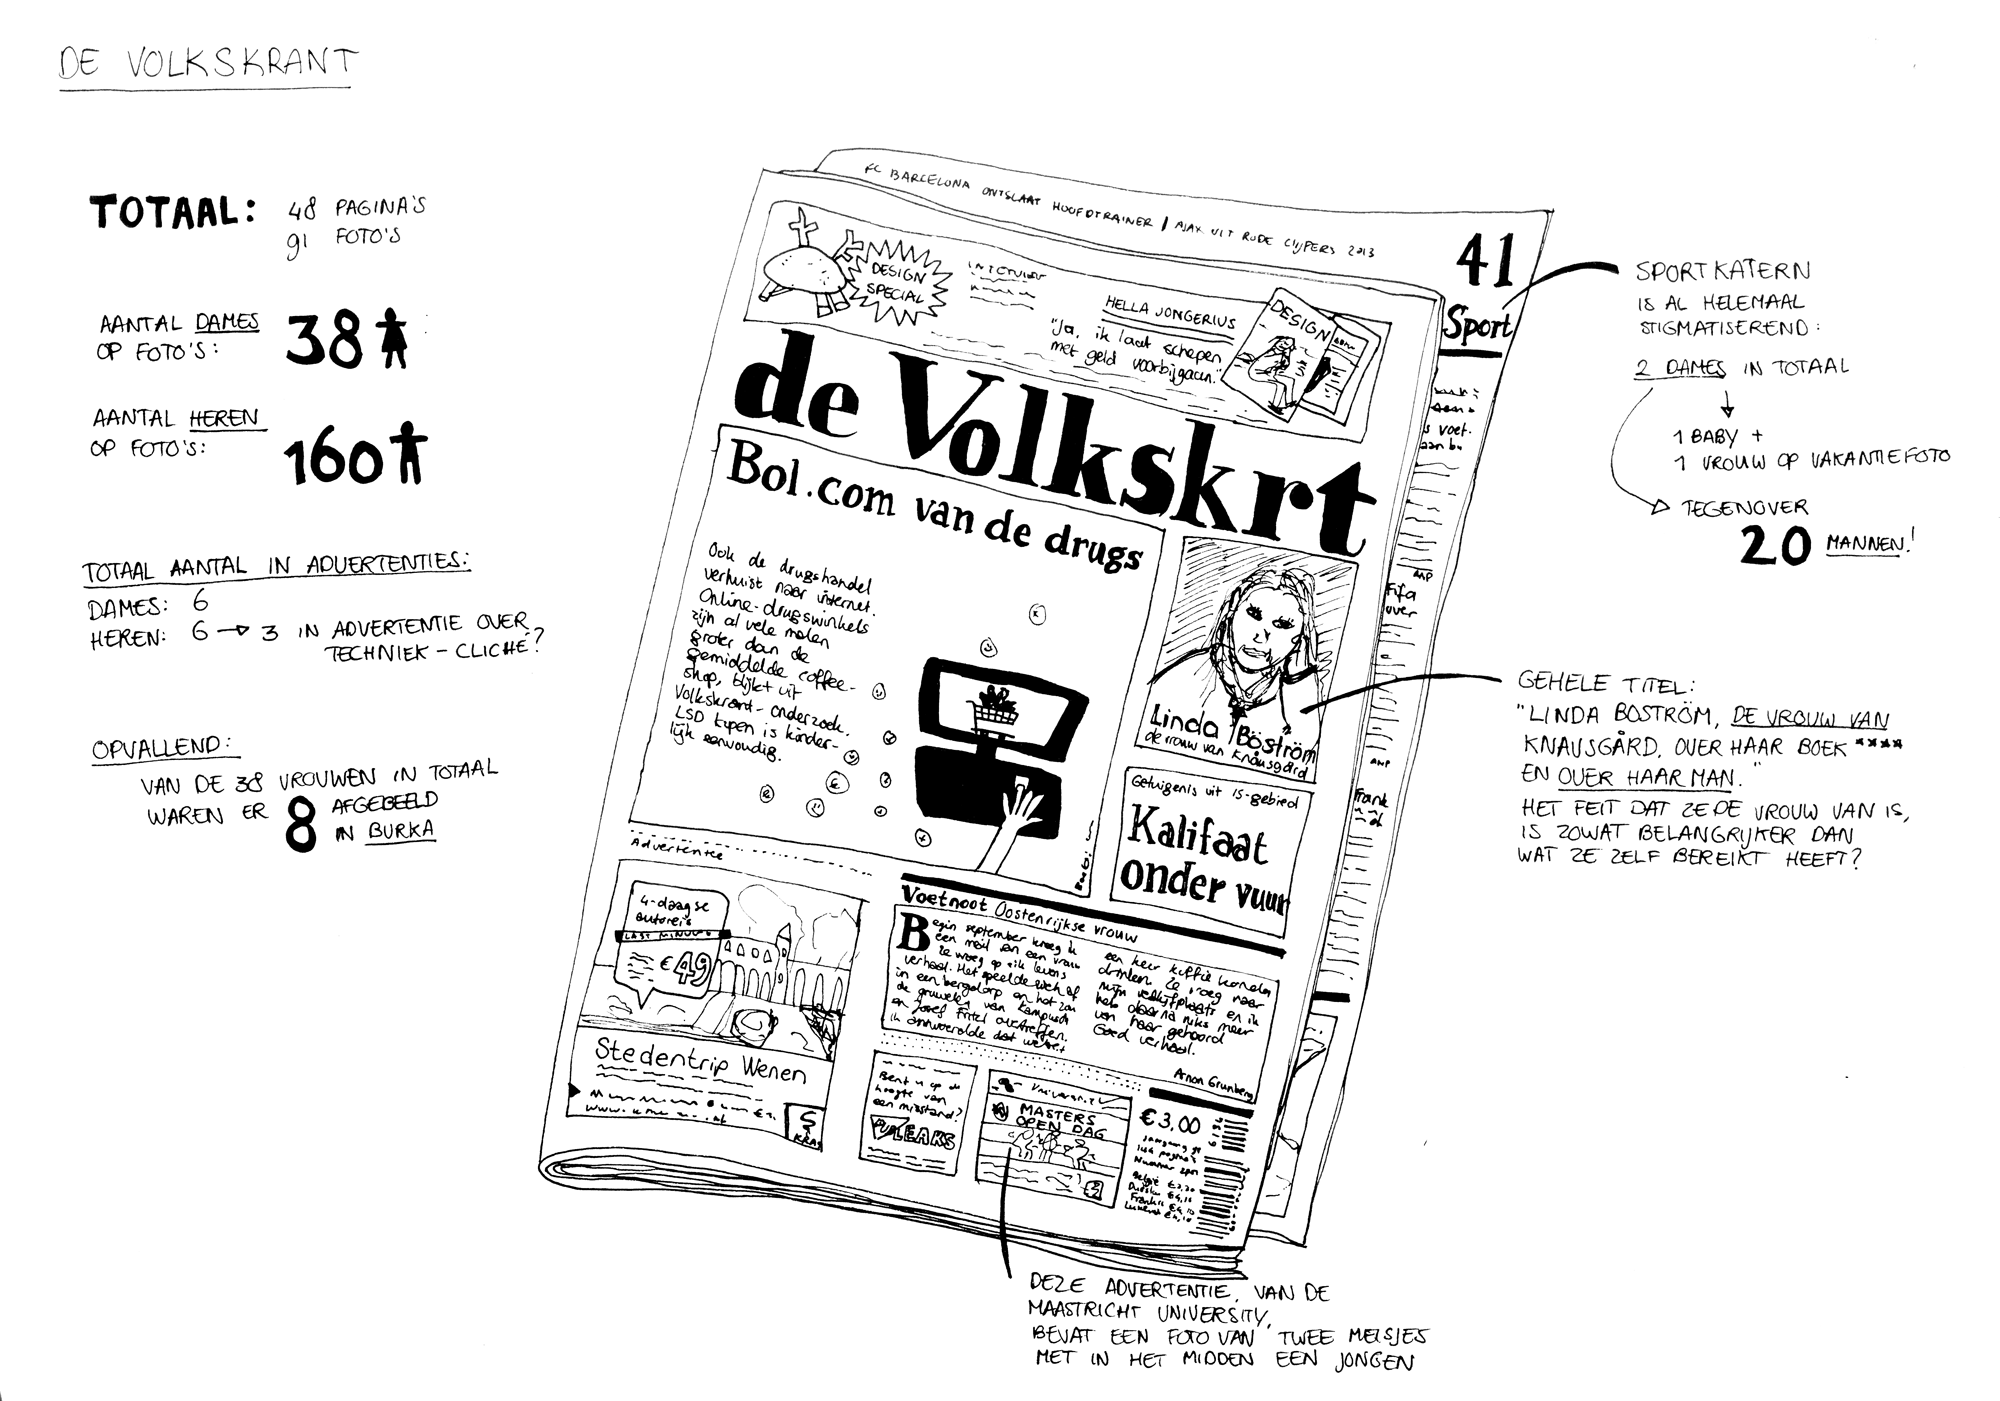 DE VOLKSKRANT
TOTAAL: 48 PAGINA'S
91 FOTO'S
AANTAL DAMES
OP FOTO'S: 38
AANTAL HEREN
OP FOTO'S: 160
TOTAAL AANTAL IN ADVERTENTIES:
DAMES: 6
HEREN: 6 → 3 IN ADVERTENTIE OVER
TECHNIEK - CLICHÉ?
OPVALLEND:
VAN DE 38 VROUWEN IN TOTAAL
WAREN ER 8 AFGEBEELD
IN BURKA
FC BARCELONA ONTSLAAT HOOFDTRAINER | AJAX UIT RODE CIJFERS 2013
41
Sport
DESIGN
SPECIAL
HELLA JONGERIUS
"Ja, ik laat schepen
met geld voorbijgaan."
DESIGN
de Volkskrt
Bol.com van de drugs
Ook de drugshandel
verhuist naar internet.
Online-drugswinkels
zijn al vele malen
groter dan de
gemiddelde coffee-
shop, blijkt uit
Volkskrant-onderzoek.
LSD kopen is kinder-
lijk eenvoudig.
Linda Böström
de vrouw van Knausgård
Getuigenis uit IS-gebied
Kalifaat
onder vuur
s voet.
ANP
Fifa
over
ANP
Frank
Advertentie
4-daagse
autoreis
LAST MINUTE
€49
Stedentrip Wenen
KRAS
Voetnoot Oostenrijkse vrouw
Begin september kreeg ik
een mail van een vrouw
ze vroeg op zik levens
verhaal. Het speelde zich af
in een bergdorp en het zou
de gruwels van Kampusch
en Josef Fritzl overtreffen.
Ik antwoordde dat we eet
een keer koffie konden
drinken. Ze vroeg naar
mijn verblijfplaats en ik
heb daarna niks meer
van haar gehoord
Goed verhaal.
Arnon Grunberg
Bent u op de
hoogte van
een misstand?
PUBLEAKS
MASTERS
OPEN DAG
€3,00
Jaargang
pagina's
Nummer
België €3,20
€4,10
€4,10
€4,10
SPORTKATERN
IS AL HELEMAAL
STIGMATISEREND:
2 DAMES IN TOTAAL
1 BABY +
1 VROUW OP VAKANTIEFOTO
TEGENOVER
20 MANNEN!
GEHELE TITEL:
"LINDA BOSTRÖM, DE VROUW VAN
KNAUSGÅRD, OVER HAAR BOEK ****
EN OVER HAAR MAN."
HET FEIT DAT ZE DE VROUW VAN IS,
IS ZOWAT BELANGRIJKER DAN
WAT ZE ZELF BEREIKT HEEFT?
DEZE ADVERTENTIE, VAN DE
MAASTRICHT UNIVERSITY,
BEVAT EEN FOTO VAN TWEE MEISJES
MET IN HET MIDDEN EEN JONGEN